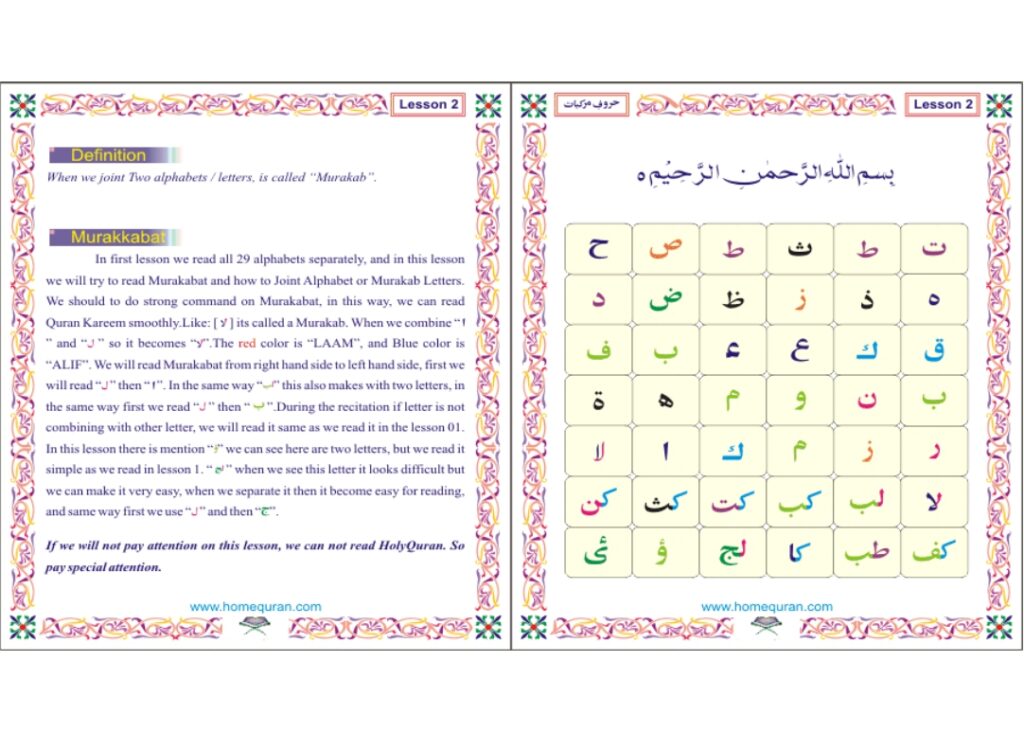 Lesson 2
Definition
When we joint Two alphabets / letters, is called “Murakab”.
Murakkabat
In first lesson we read all 29 alphabets separately, and in this lesson
we will try to read Murakabat and how to Joint Alphabet or Murakab Letters.
We should to do strong command on Murakabat, in this way, we can read
Quran Kareem smoothly.Like: [ لا ] its called a Murakab. When we combine “ا
” and “ل” so it becomes “لا”.The red color is “LAAM”, and Blue color is
“ALIF”. We will read Murakabat from right hand side to left hand side, first we
will read “ل” then “ا”. In the same way “لب” this also makes with two letters, in
the same way first we read “ل” then “ب”.During the recitation if letter is not
combining with other letter, we will read it same as we read it in the lesson 01.
In this lesson there is mention “ؤ” we can see here are two letters, but we read it
simple as we read in lesson 1. “لج” when we see this letter it looks difficult but
we can make it very easy, when we separate it then it become easy for reading,
and same way first we use “ل” and then “ج”.
If we will not pay attention on this lesson, we can not read HolyQuran. So
pay special attention.
www.homequran.com
حروف مرکبات
Lesson 2
بِسْمِ اللّٰهِ الرَّحْمٰنِ الرَّحِيْمِ ه
ت ط ث ط ص ح
ه ذ ز ظ ض د
ق ك ع ء ب ف
ب ن و م ه ة
ر ز م ك ا لا
لا لب كب كت كث كن
كف طب كا لج ؤ ئ
www.homequran.com